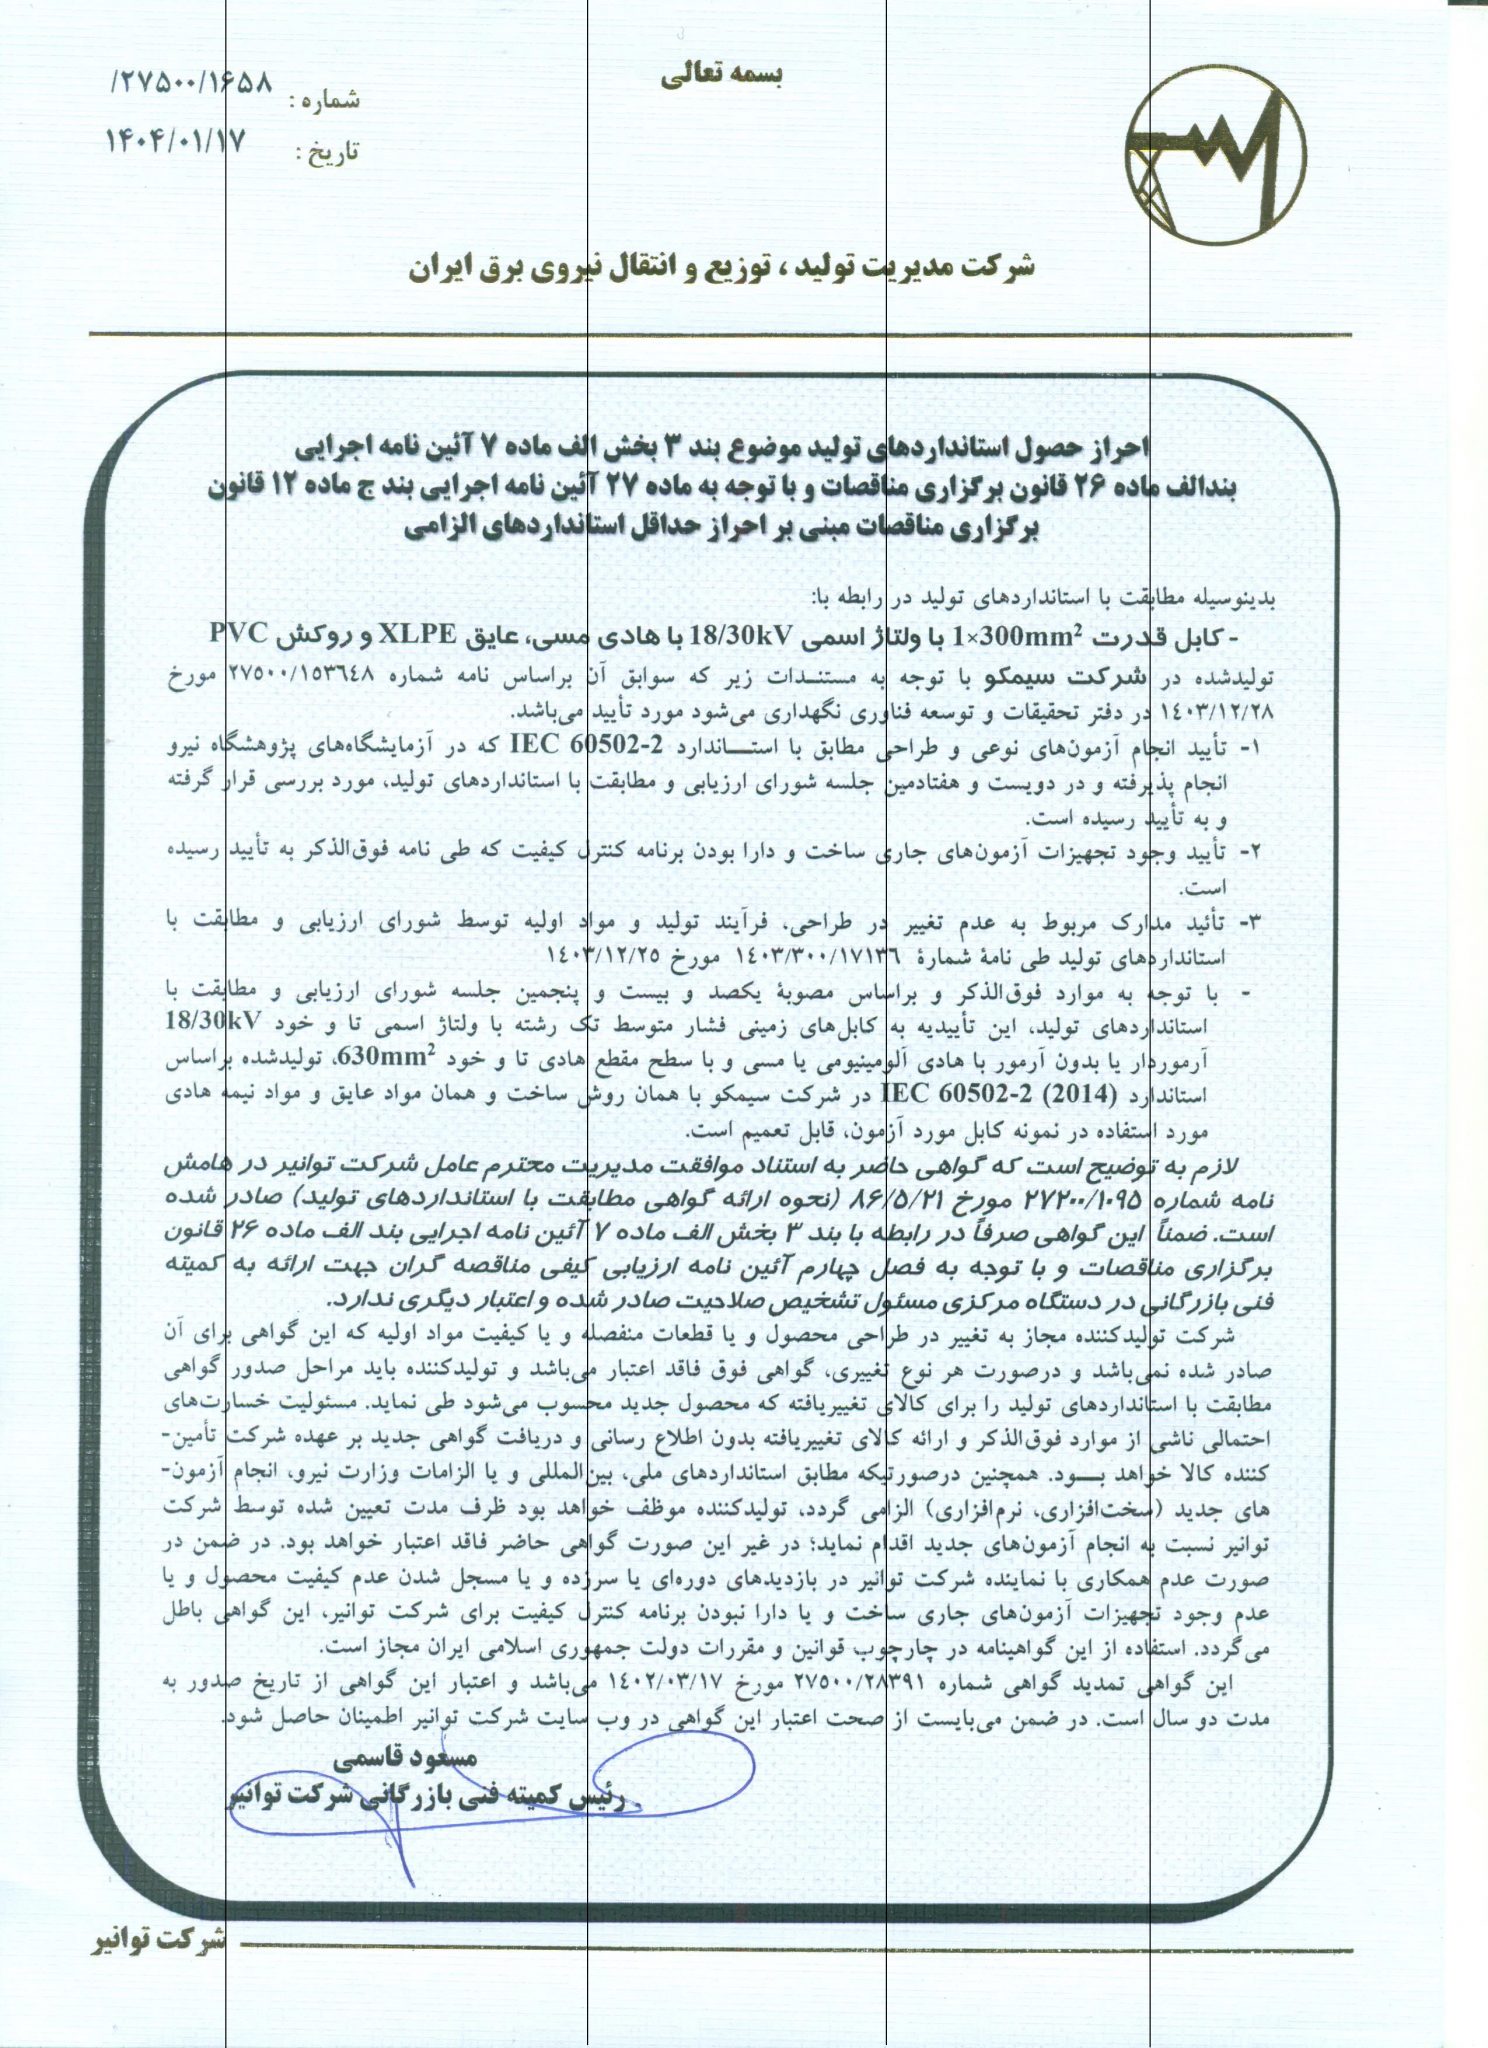 بسمه تعالی
شماره : ۲۷۵۰۰/۱۶۵۸/
تاریخ : ۱۴۰۴/۰۱/۱۷
شرکت مدیریت تولید ، توزیع و انتقال نیروی برق ایران
احراز حصول استانداردهای تولید موضوع بند ۳ بخش الف ماده ۷ آئین نامه اجرایی
بندالف ماده ۲۶ قانون برگزاری مناقصات و با توجه به ماده ۲۷ آئین نامه اجرایی بند ج ماده ۱۲ قانون
برگزاری مناقصات مبنی بر احراز حداقل استانداردهای الزامی
بدینوسیله مطابقت با استانداردهای تولید در رابطه با:
- کابل قدرت 1×300mm² با ولتاژ اسمی 18/30kV با هادی مسی، عایق XLPE و روکش PVC
تولیدشده در شرکت سیمکو با توجه به مستندات زیر که سوابق آن براساس نامه شماره ۲۷۵۰۰/۱۵۳٦٤۸ مورخ
۱٤۰۳/۱۲/۲۸ در دفتر تحقیقات و توسعه فناوری نگهداری می‌شود مورد تأیید می‌باشد.
۱- تأیید انجام آزمون‌های نوعی و طراحی مطابق با استاندارد IEC 60502-2 که در آزمایشگاه‌های پژوهشگاه نیرو
انجام پذیرفته و در دویست و هفتادمین جلسه شورای ارزیابی و مطابقت با استانداردهای تولید، مورد بررسی قرار گرفته
و به تأیید رسیده است.
۲- تأیید وجود تجهیزات آزمون‌های جاری ساخت و دارا بودن برنامه کنترل کیفیت که طی نامه فوق‌الذکر به تأیید رسیده
است.
۳- تأئید مدارک مربوط به عدم تغییر در طراحی، فرآیند تولید و مواد اولیه توسط شورای ارزیابی و مطابقت با
استانداردهای تولید طی نامۀ شمارۀ ۱٤۰۳/۳۰۰/۱۷۱۳٦ مورخ ۱٤۰۳/۱۲/۲۵
- با توجه به موارد فوق‌الذکر و براساس مصوبۀ یکصد و بیست و پنجمین جلسه شورای ارزیابی و مطابقت با
استانداردهای تولید، این تأییدیه به کابل‌های زمینی فشار متوسط تک رشته با ولتاژ اسمی تا و خود 18/30kV
آرموردار یا بدون آرمور با هادی آلومینیومی یا مسی و با سطح مقطع هادی تا و خود 630mm²، تولیدشده براساس
استاندارد IEC 60502-2 (2014) در شرکت سیمکو با همان روش ساخت و همان مواد عایق و مواد نیمه هادی
مورد استفاده در نمونه کابل مورد آزمون، قابل تعمیم است.
لازم به توضیح است که گواهی حاضر به استناد موافقت مدیریت محترم عامل شرکت توانیر در هامش
نامه شماره ۲۷۲۰۰/۱۰۹۵ مورخ ۸۶/۵/۲۱ (نحوه ارائه گواهی مطابقت با استانداردهای تولید) صادر شده
است. ضمناً این گواهی صرفاً در رابطه با بند ۳ بخش الف ماده ۷ آئین نامه اجرایی بند الف ماده ۲۶ قانون
برگزاری مناقصات و با توجه به فصل چهارم آئین نامه ارزیابی کیفی مناقصه گران جهت ارائه به کمیته
فنی بازرگانی در دستگاه مرکزی مسئول تشخیص صلاحیت صادر شده و اعتبار دیگری ندارد.
شرکت تولیدکننده مجاز به تغییر در طراحی محصول و یا قطعات منفصله و یا کیفیت مواد اولیه که این گواهی برای آن
صادر شده نمی‌باشد و درصورت هر نوع تغییری، گواهی فوق فاقد اعتبار می‌باشد و تولیدکننده باید مراحل صدور گواهی
مطابقت با استانداردهای تولید را برای کالای تغییریافته که محصول جدید محسوب می‌شود طی نماید. مسئولیت خسارت‌های
احتمالی ناشی از موارد فوق‌الذکر و ارائه کالای تغییریافته بدون اطلاع رسانی و دریافت گواهی جدید بر عهده شرکت تأمین-
کننده کالا خواهد بود. همچنین درصورتیکه مطابق استانداردهای ملی، بین‌المللی و یا الزامات وزارت نیرو، انجام آزمون-
های جدید (سخت‌افزاری، نرم‌افزاری) الزامی گردد، تولیدکننده موظف خواهد بود ظرف مدت تعیین شده توسط شرکت
توانیر نسبت به انجام آزمون‌های جدید اقدام نماید؛ در غیر این صورت گواهی حاضر فاقد اعتبار خواهد بود. در ضمن در
صورت عدم همکاری با نماینده شرکت توانیر در بازدیدهای دوره‌ای یا سرزده و یا مسجل شدن عدم کیفیت محصول و یا
عدم وجود تجهیزات آزمون‌های جاری ساخت و یا دارا نبودن برنامه کنترل کیفیت برای شرکت توانیر، این گواهی باطل
می‌گردد. استفاده از این گواهینامه در چارچوب قوانین و مقررات دولت جمهوری اسلامی ایران مجاز است.
این گواهی تمدید گواهی شماره ۲۷۵۰۰/۲۸۳۹۱ مورخ ۱٤۰۲/۰۳/۱۷ می‌باشد و اعتبار این گواهی از تاریخ صدور به
مدت دو سال است. در ضمن می‌بایست از صحت اعتبار این گواهی در وب سایت شرکت توانیر اطمینان حاصل شود.
مسعود قاسمی
رئیس کمیته فنی بازرگانی شرکت توانیر
شرکت توانیر